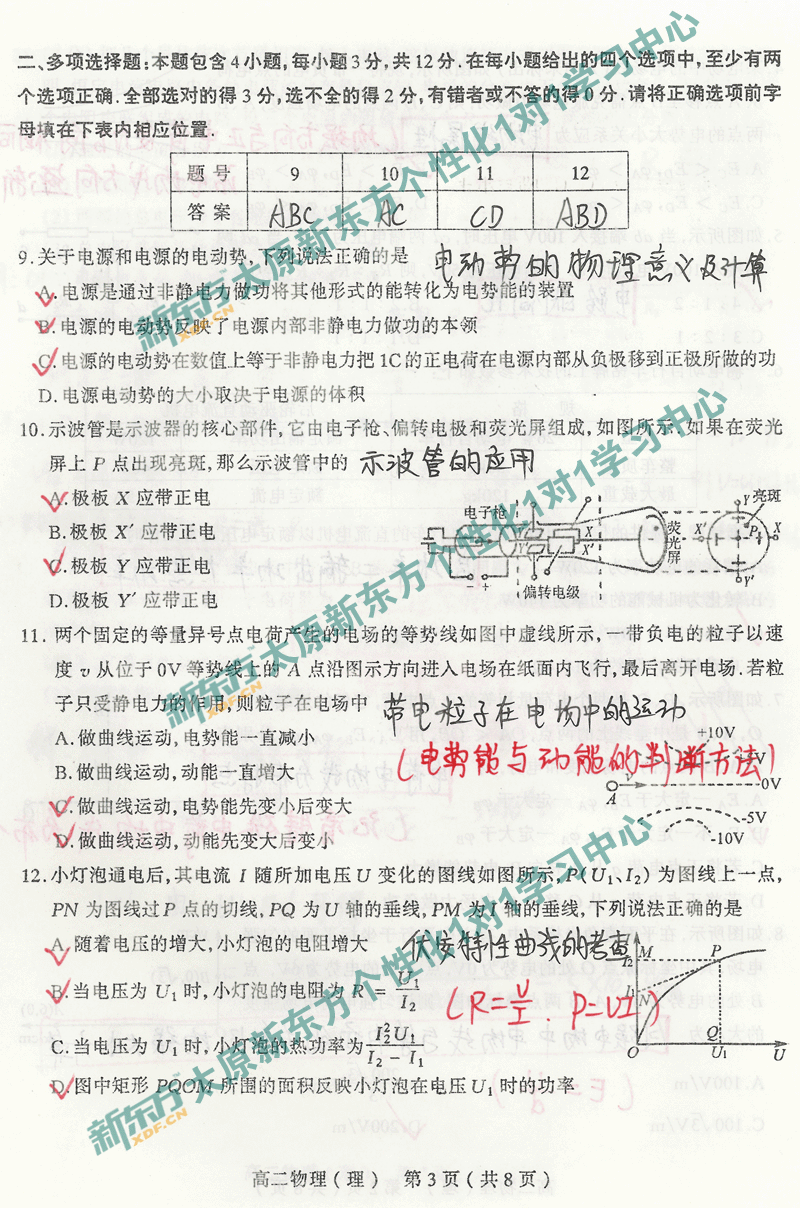 二、多项选择题:本题包含4小题,每小题3分,共12分.在每小题给出的四个选项中,至少有两
个选项正确.全部选对的得3分,选不全的得2分,有错者或不答的得0分.请将正确选项前字
母填在下表内相应位置.
题号 9 10 11 12
答案 ABC AC CD ABD
9.关于电源和电源的电动势,下列说法正确的是 电动势的物理意义及计算
A.电源是通过非静电力做功将其他形式的能转化为电势能的装置
B.电源的电动势反映了电源内部非静电力做功的本领
C.电源的电动势在数值上等于非静电力把1C的正电荷在电源内部从负极移到正极所做的功
D.电源电动势的大小取决于电源的体积
10.示波管是示波器的核心部件,它由电子枪、偏转电极和荧光屏组成,如图所示.如果在荧光
屏上P点出现亮斑,那么示波管中的 示波管的应用
A.极板X应带正电
B.极板X′应带正电
C.极板Y应带正电
D.极板Y′应带正电
电子枪
Y
Y′
X
X′
荧光屏
偏转电级
- +
亮斑
Y
X′
X
Y′
11.两个固定的等量异号点电荷产生的电场的等势线如图中虚线所示,一带负电的粒子以速
度v从位于0V等势线上的A点沿图示方向进入电场在纸面内飞行,最后离开电场.若粒
子只受静电力的作用,则粒子在电场中 带电粒子在电场中的运动
(电势能与动能的判断方法)
A.做曲线运动,电势能一直减小
B.做曲线运动,动能一直增大
C.做曲线运动,电势能先变小后变大
D.做曲线运动,动能先变大后变小
+10V
0V
-5V
-10V
v
A
12.小灯泡通电后,其电流I随所加电压U变化的图线如图所示,P(U₁、I₂)为图线上一点,
PN为图线过P点的切线,PQ为U轴的垂线,PM为I轴的垂线,下列说法正确的是
A.随着电压的增大,小灯泡的电阻增大 伏安特性曲线的考查
B.当电压为U₁时,小灯泡的电阻为R=U₁/I₂ (R=U/I . P=UI)
C.当电压为U₁时,小灯泡的热功率为I₂²U₁/(I₂-I₁)
D.图中矩形PQOM所围的面积反映小灯泡在电压U₁时的功率
I₂
M
P
N
O
Q
U₁
U
高二物理(理) 第3页(共8页)
新东方 太原新东方个性化1对1学习中心
XDF.CN
新东方 太原新东方个性化1对1学习中心
XDF.CN
新东方 太原新东方个性化1对1学习中心
XDF.CN